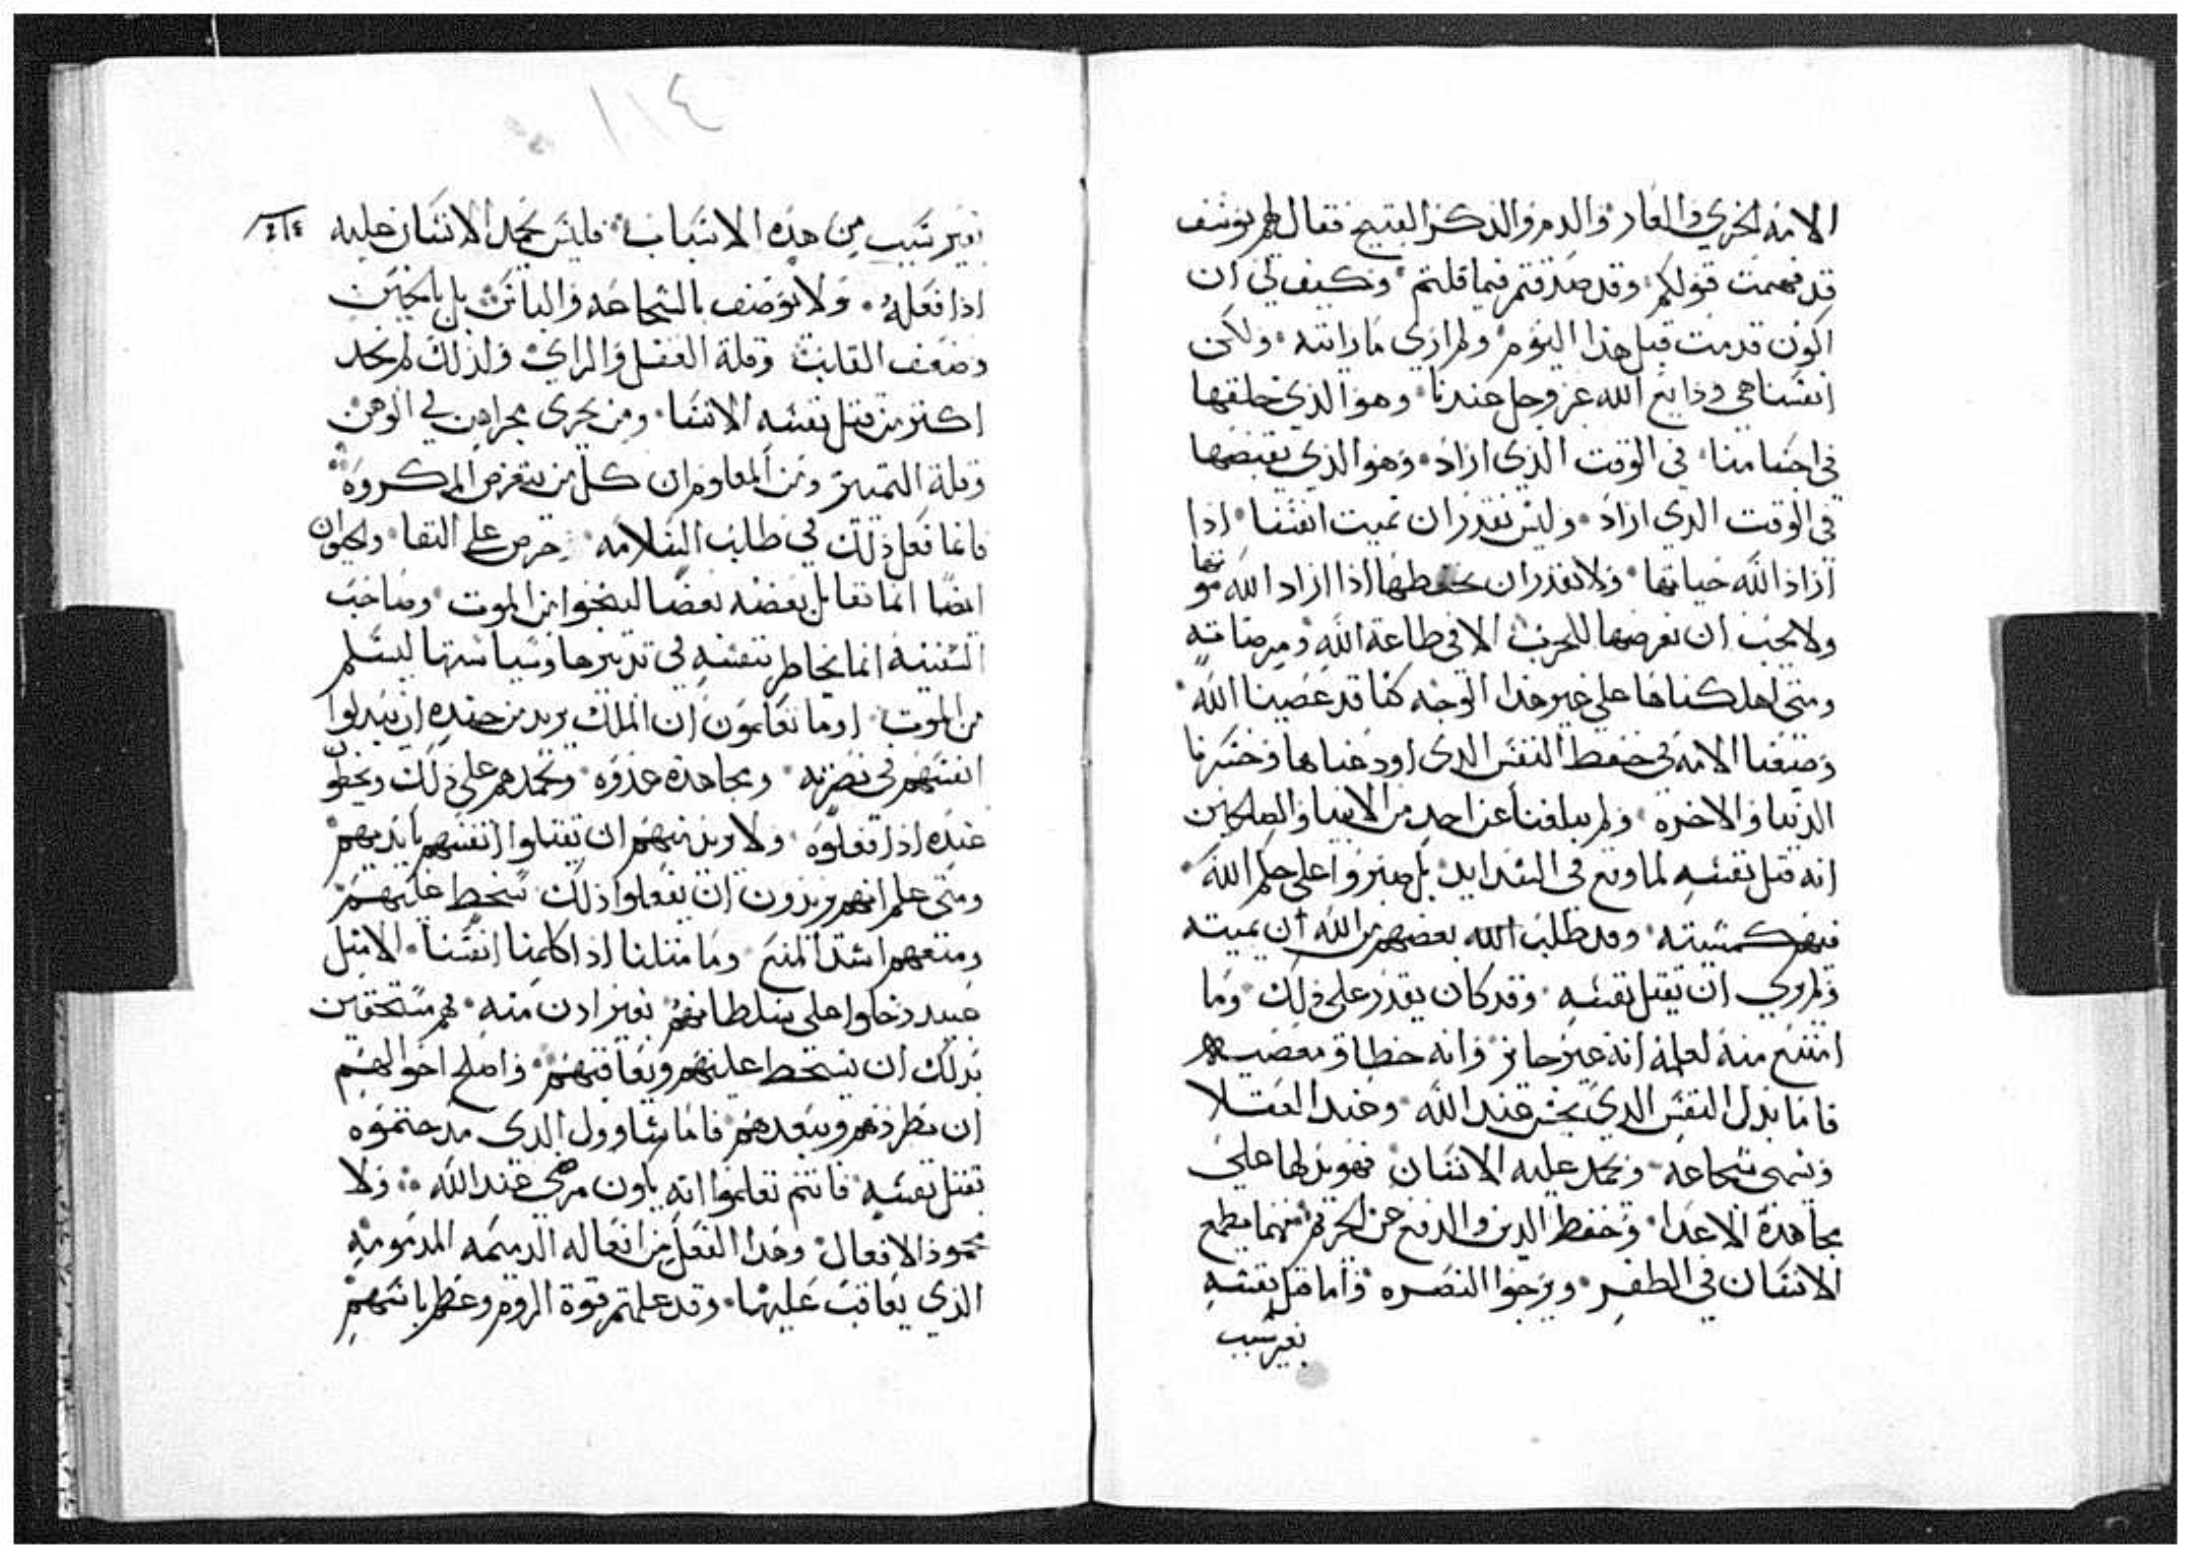 الامة الخزي والعار والدم والذكر القبيح فقال لهم يوسف
قد فهمت قولكم وقد صدقتم فيما قلتم وكيف لي ان
اكون قد مت قبل هذا اليوم ولم ارى ما رايته ولكن
انفسنا هي ودايع الله عز وجل عندنا وهو الذي خلقها
في اجسامنا في الوقت الذي اراد وهو الذي يقبضها
في الوقت الدي اراد وليس نقدر ان نميت انفسنا اذا
اراد الله حياتها ولا نقدر ان نحفظها اذا اراد الله موتها
ولا يجب ان نعرضها للحرب الا في طاعة الله ومرضاته
ومتى اهلكناها على غير هذا الوجه كنا قد عصينا الله
وضيعنا الامة في حفظ النفس الدي اودعناها وخسرنا
الدنيا والاخرة ولم يبلغنا عن احد من الانبيا والصالحين
انه قتل نفسه لما وقع في الشدايد بل صبروا على حكم الله
فيهم كمشيته وقد طلب الله بعضهم من الله ان يميته
ولم يرى ان يقتل نفسه وقد كان يقدر على ذلك وما
امتنع منه لعلمه انه غير جايز وانه خطا ومعصيه
فاما بذل النفس الدي يحسن عند الله وعند العقلا
ويسمى شجاعة ويحمد عليه الانسان فهو بذلها على
مجاهدة الاعدا وحفظ الدين والدفع عن الحرم مهما يطمع
الانسان في الظفر ويرجوا النصره واما قتل نفسه
بغير سبب
١١٤
بغير سبب من هذه الاسباب فليس يحمد الانسان عليه
اذا فعله ولا يوصف بالشجاعة والباس بل بالجبن
وضعف القلب وقلة العقل والراي ولذلك لم يجد
اكثر من قتل نفسه الا النسا ومن يجرى مجراهن في الوهن
وقلة التمييز ومن المعلوم ان كل من يتعرض المكروه
فانما فعل ذلك في طلب السلامه حرص على البقا والحيوان
ايضا انما يقاتل بعضه بعضا لينجوا من الموت وصاحب
السفينة انما يخاطر بنفسه في تدبيرها وسياستها ليسلم
من الموت اوما تعلمون ان الملك يريد من جنده ان يبدلوا
انفسهم في نصرته ومجاهدة عدوه ويحمدهم على ذلك ويحظون
عنده اذا فعلوه ولا يريد منهم ان يقتلوا انفسهم بايديهم
ومتى علم انهم يريدون ان يفعلوا ذلك سخط عليهم
ومنعهم اشد المنع وما مثلنا اذا كلمنا انفسنا الا مثل
عبيد دخلوا على سلطانهم بغير ادن منه فهم مستحقين
بذلك ان يسخط عليهم ويعاقبهم واصلح احوالهم
ان يطردهم ويبعدهم فاما شاوول الدي مدحتموه
بقتل نفسه فانتم تعلموا انه ياون مرضي عند الله ولا
محمود الافعال وهذا الفعل من افعاله الدميمه المدمومه
الذي يعاقب عليها وقد علمتم قوة الروم وعظم باسهم